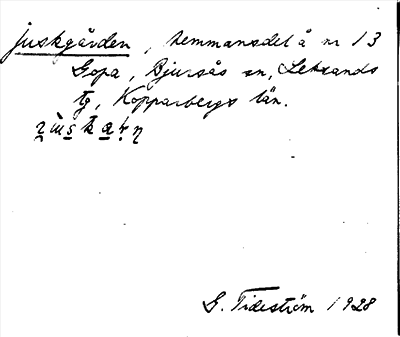 juskgården, hemmansdel å nr 13
Gopa, Bjursås sn, Leksands
tg, Kopparbergs län.
G. Tideström 1928